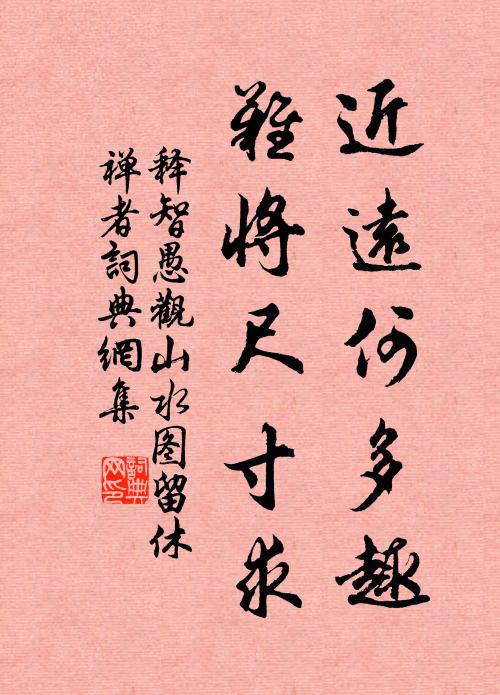 近遠何多趣
難將尺寸求
释智愚觀山水图留休
禅者詞典網集
詞典网印